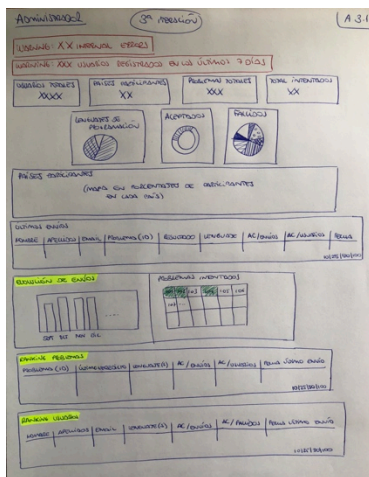 Administrador
3ª versión
A3.1
WARNING: XX INTERNAL ERRORS
WARNING: XXX USUARIOS REGISTRADOS EN LOS ÚLTIMOS 7 DÍAS
USUARIOS TOTALES
XXXX
PAÍSES PARTICIPANTES
XX
PROBLEMAS TOTALES
XXX
TOTAL INTENTADOS
XX
LENGUAJES DE PROGRAMACIÓN
ACEPTADOS
FALLIDOS
PAÍSES PARTICIPANTES
(MAPA CON PORCENTAJES DE PARTICIPANTES
EN CADA PAÍS)
ÚLTIMOS ENVÍOS
NOMBRE | APELLIDOS | EMAIL | PROBLEMA (ID) | RESULTADO | LENGUAJE | AC/ENVÍOS | AC/USUARIOS | FECHA
EVOLUCIÓN DE ENVÍOS
SEPT OCT NOV DIC
...
PROBLEMAS INTENTADOS
RANKING PROBLEMAS
PROBLEMA (ID) | LENGUAJE(S) | AC/ENVÍOS | AC/USUARIOS | FECHA ÚLTIMO ENVÍO
RANKING USUARIOS
NOMBRE | APELLIDOS | EMAIL | LENGUAJE(S) | AC/ENVÍOS | AC/FALLIDOS | FECHA ÚLTIMO ENVÍO